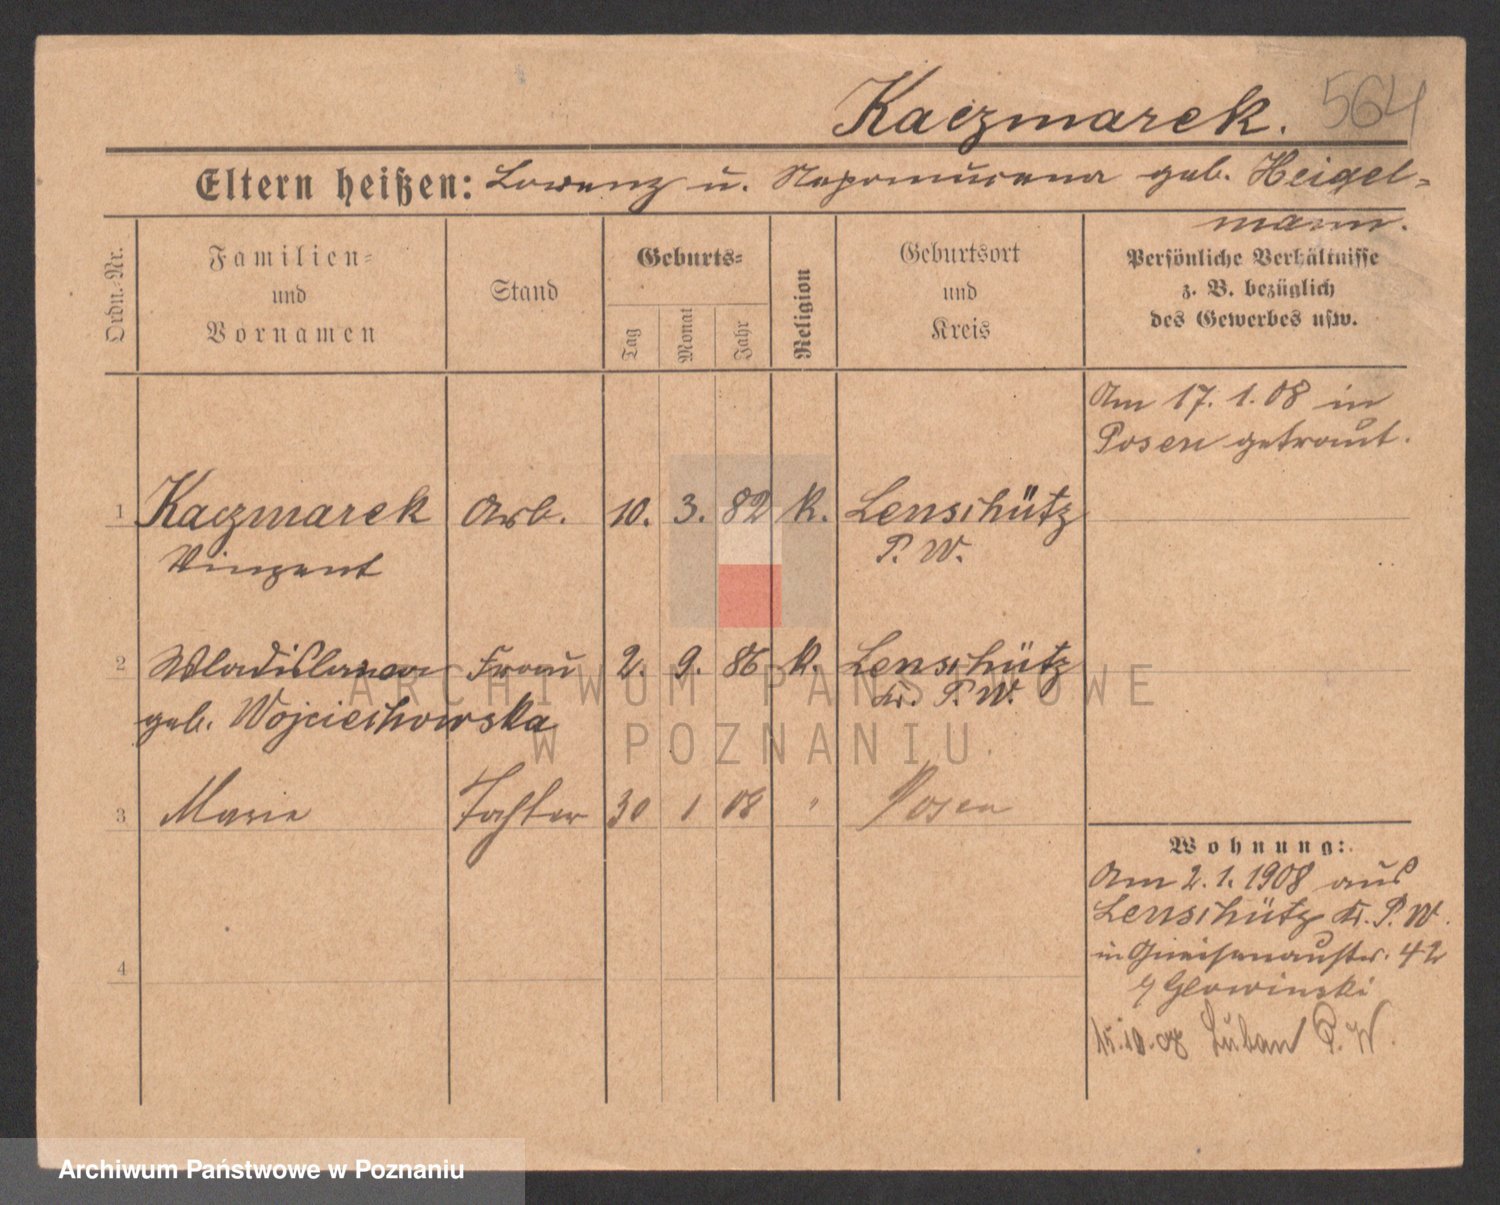 Kaczmarek. 564
Eltern heißen: Lorenz u. Nepomucena geb. Heigel-
mann.
Ordn.-Nr.
Familien-
und
Vornamen
Stand
Geburts-
Tag
Monat
Jahr
Religion
Geburtsort
und
Kreis
Persönliche Verhältnisse
z. B. bezüglich
des Gewerbes usw.
Am 17. 1. 08 in
Posen getraut.
1 Kaczmarek Arb. 10. 3. 82 K. Lenschütz
Vinzent P. W.
2 Wladislawa Frau 2. 9. 86 K. Lenschütz
geb. Wojciechowska Kr. P. W.
3 Marie Tochter 30 1 08 " Posen
4
Wohnung:
Am 2. 1. 1908 aus
Lenschütz Kr. P. W.
in Gneisenaustr. 42
Glowinski
15.10.08 Luban P. W.
ARCHIWUM PAŃSTWOWE
W POZNANIU
Archiwum Państwowe w Poznaniu